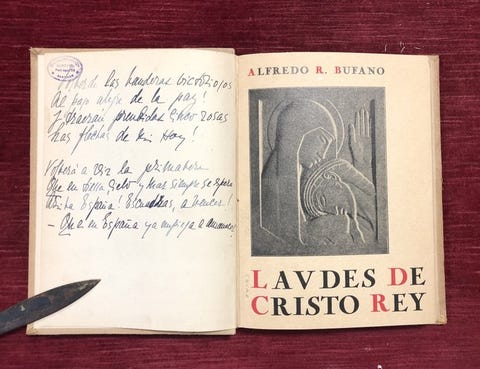 Volverán banderas victoriosas
Al paso alegre de la paz!
Y traerán prendidas cinco rosas
Las flechas de mi Haz!
Volverá a reír la primavera
Que en tierra, cielo y mar siempre se espera
Arriba España! Escuadras, a vencer!
- Que en España ya empieza a amanecer!
ALFREDO R. BUFANO
LAVDES DE
CRISTO REY